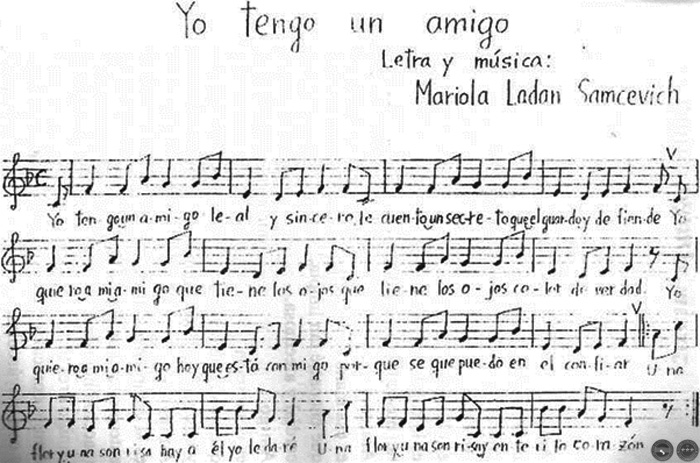 Yo tengo un amigo
Letra y música:
Mariola Ladan Samcevich
Yo ten-goun a-mi-go le-al - y sin-ce-ro, le cuen-toun sec-re-to queel guar-da y de fien-de Yo
quie roa mi a-mi go que tie-ne los o-jos que tie-ne los o-jos co-lor de ver dad. Yo
quie-roa mi a-mi-go hoy que es-tá con mi go por-que se que pue-do en el con-fi-ar U-na
flor y u na son ri sa hay a él yo le da-ré U-na flor y u na son ri-say en-te ri to co-ra-zón